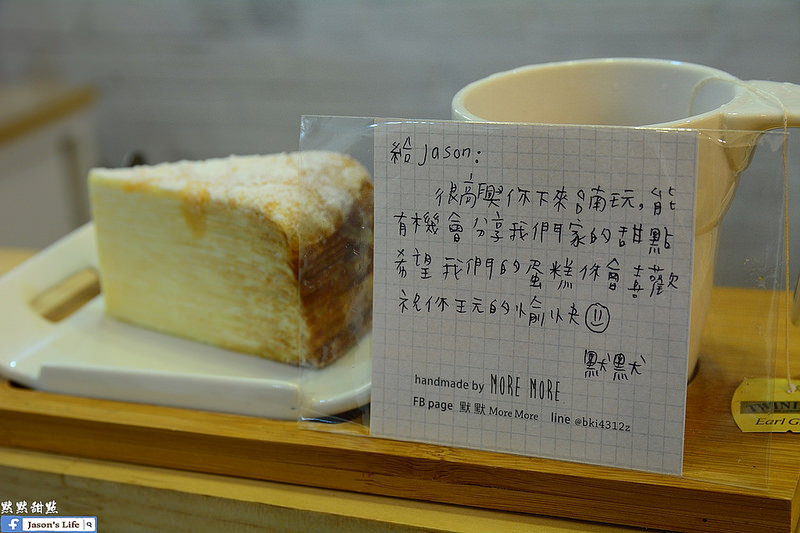 給 Jason:
很高興你下來台南玩,能
有機會分享我們家的甜點
希望我們的蛋糕你會喜歡
祝你玩的愉快
默默
handmade by MORE MORE
FB page 默默 More More line @bki4312z
TWININ
Earl G
默默甜點
f Jason's Life